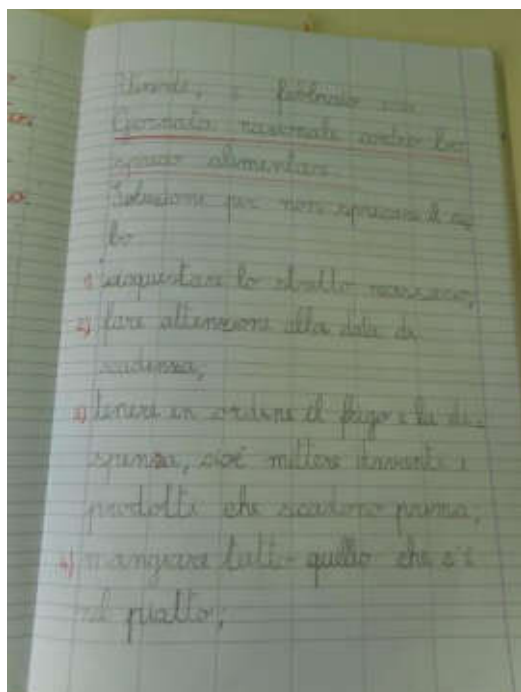 Venerdì, 5 febbraio
Giornata nazionale contro lo
spreco alimentare.
Soluzione per non sprecare il ci
bo
1) acquistare lo stretto necessario;
2) fare attenzione alla data di
scadenza;
3) tenere in ordine il frigo e la di-
spensa, cioè mettere davanti i
prodotti che scadono prima;
4) mangiare tutto quello che c'è
nel piatto;